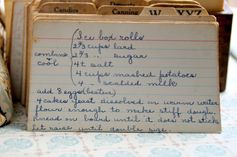 Candies
Canning
W
XYZ
Ice box rolls
2⅔ cups lard
combine 2⅔ " sugar
cool 4 t salt
4 cups mashed potatoes
4 " scalded milk
add 8 eggs (beaten)
4 cakes yeast dissolved in warm water
flour enough to make stiff dough.
knead on board until it does not stick
let raise until double size.